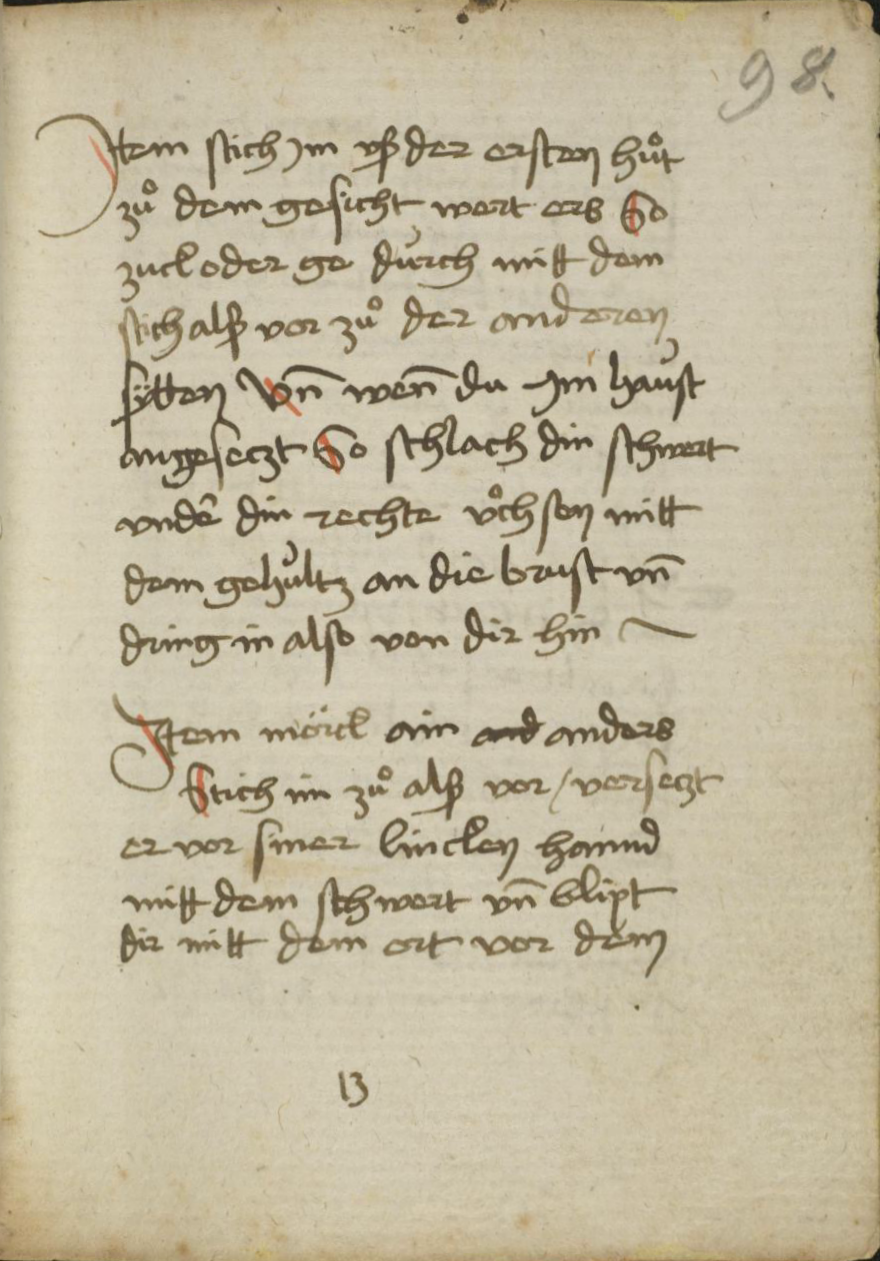 98.
Jtem stich Jm vß der ersten hůt
zů dem gesicht wert ers So
zuck oder ge durch mitt dem
stich alß vor zů der anderen
sytten Vn̄ wen̄ du Jm haust
angeseczt So schlach din schwert
vnder din rechte vͦchsen mitt
dem gehültz an die brust vn̄
dring in also von dir hin
Jtem mörck ain and anders
Stich im zů alß vor / verseczt
er vor siner lincken hannd
mitt dem schwert vn̄ blipt
dir mitt dem ort vor dem
13